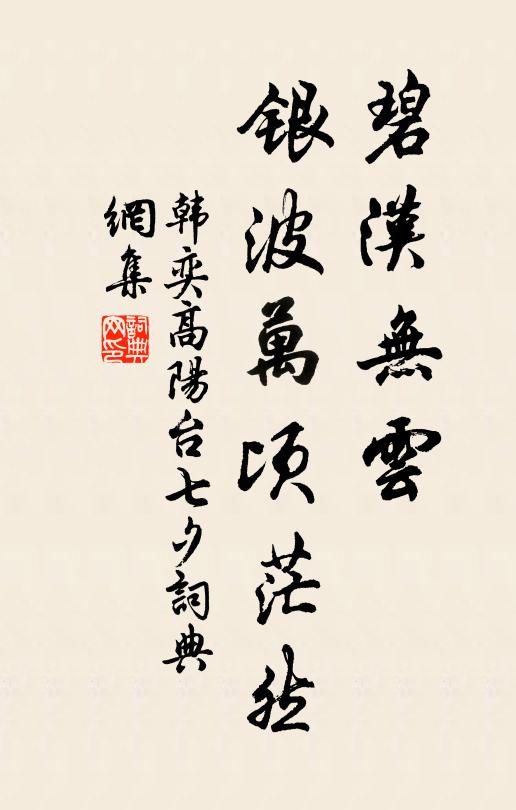 碧漢無雲
銀波萬頃茫然
韩奕高陽台七夕詞典
網集
詞典
网印